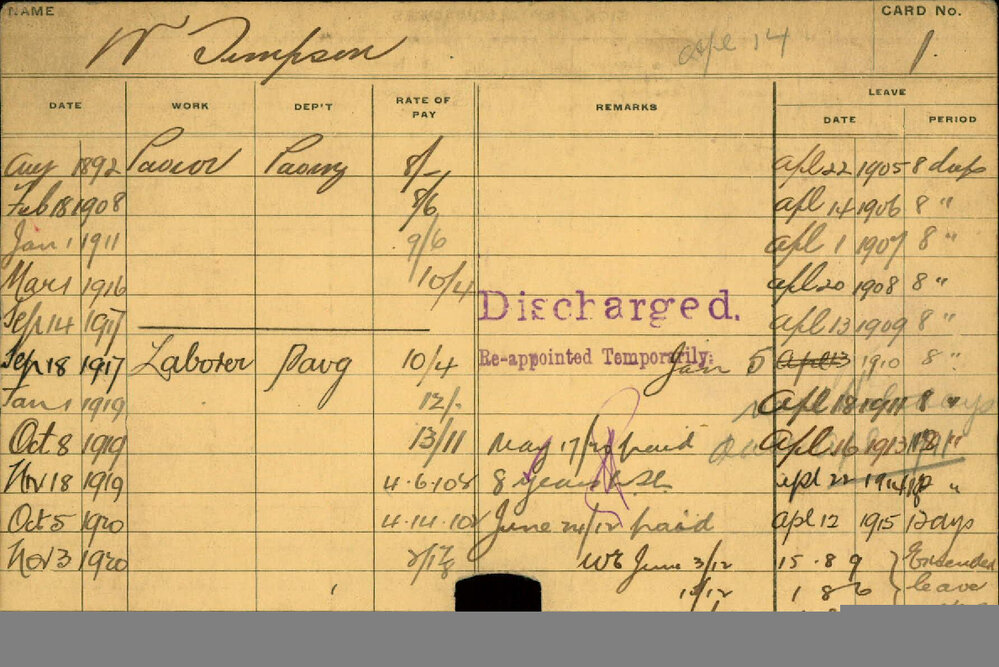 NAME CARD No.
W Timpson apl 14 1.
DATE WORK DEP'T RATE OF PAY REMARKS LEAVE
DATE PERIOD
Aug 1892 Pavior Paving 8/- Apl 22 1905 8 days
Feb 18 1908 8/6 Apl 14 1906 8 "
Jan 1 1911 9/6 Apl 1 1907 8 "
Mar 1 1916 10/4 Apl 20 1908 8 "
Sep 14 1917 Discharged. Apl 13 1909 8 "
Sep 18 1917 Laborer Pavg 10/4 Re-appointed Temporarily. Jan 5 Apl 13 1910 8 "
Jan 1 1919 12/- Apl 18 1911 8 "
Oct 8 1919 13/11 May 17/20 paid Apl 16 1913
Nov 18 1919 4.6.10 8 years 22 1914 "
Oct 5 1920 4.14.10 June 24/12 paid Apl 12 1915 12 dys
Nov 3 1920 We June 3/12 15.8.9 Extended
1 8 6 leave